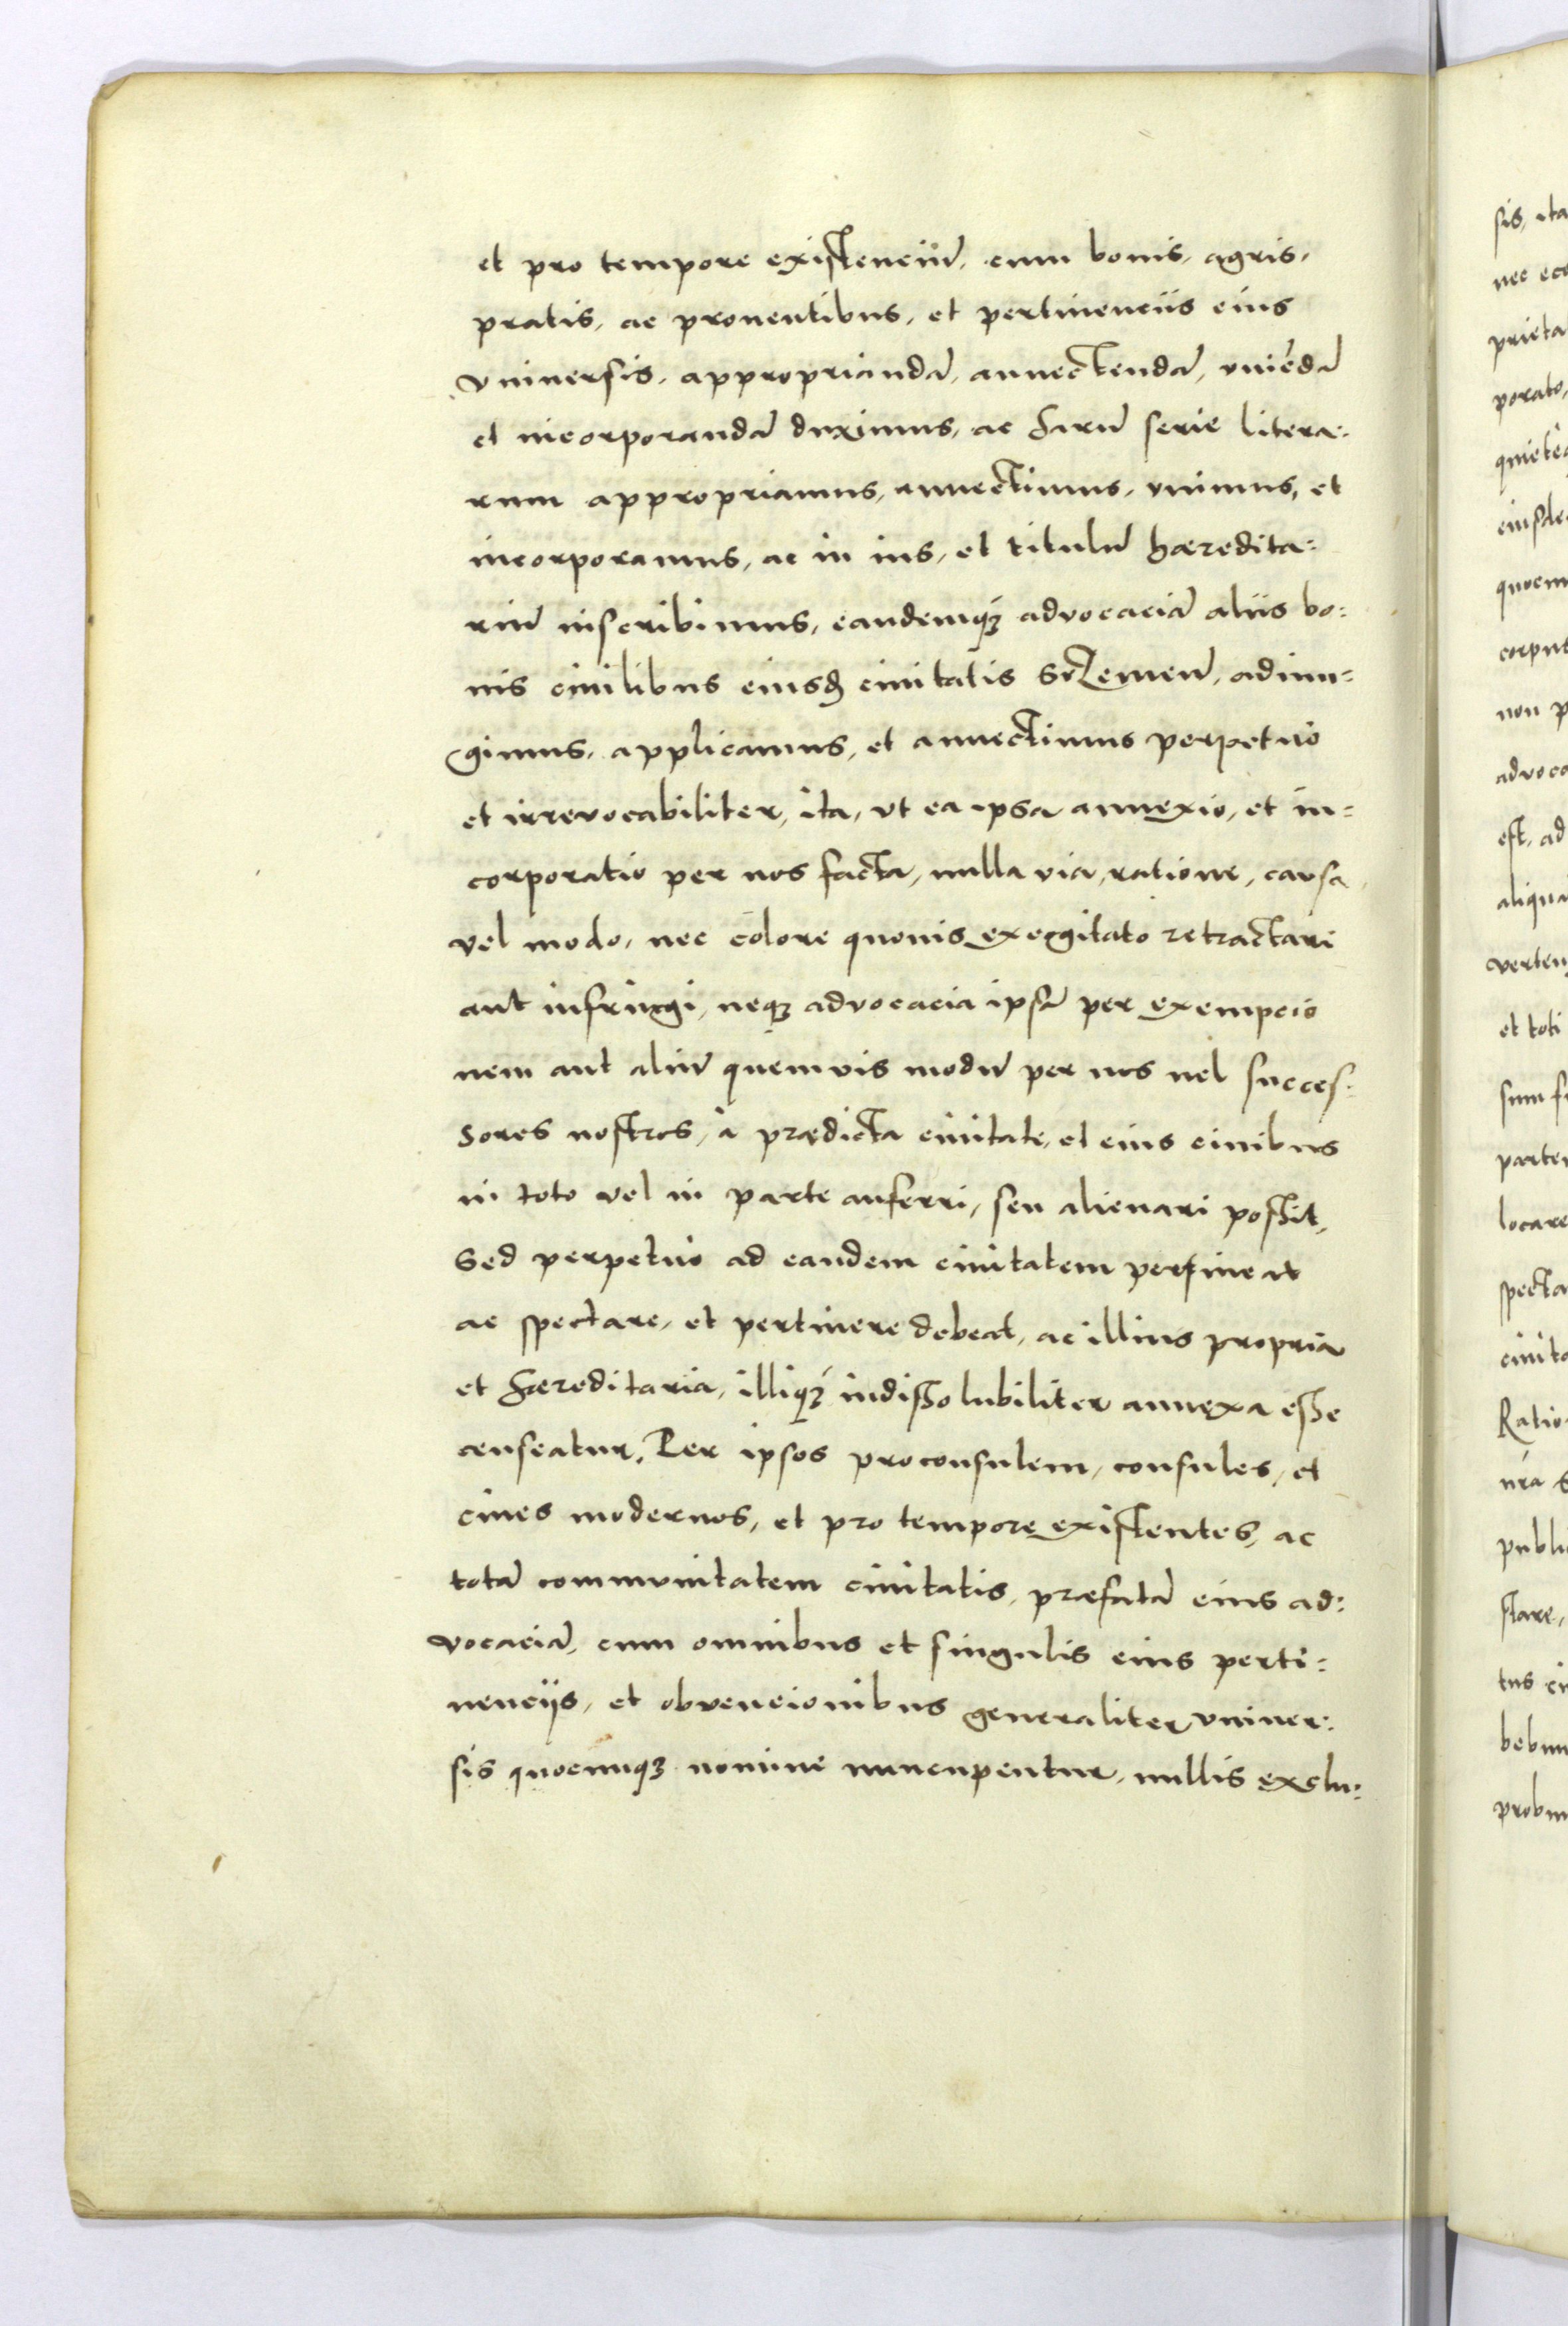 et pro tempore existenciũ, cum bonis, agris,
pratis, ac proventibus, et pertinenciis eius
universis, appropriandã, annectendã, uniẽdã
et incorporandã duximus, ac harũ serie litera:
rum appropriamus, annectimus, unimus, et
incorporamus, ac in ius, et titulũ hæredita:
riũ inscribimus, eandemq₃ advocaciã aliis bo:
nis civilibus eiusd civitatis adiun:
gimus, applicamus, et annectimus perpetuò
et irrevocabiliter, ita, ut ea ipsa annexio, et in:
corporatio per nos facta, nulla via, ratione, causa,
vel modo, nec colore quovis excogitato retractari
aut infringi, neq₃ advocacia ipsa per exempcio
nem aut aliũ quemvis modũ per nos vel succes:
sores nostros, à prædicta civitate, et eius civibus
in toto vel in parte auferri, seu alienari possit,
Sed perpetuò ad eandem civitatem pertineat
ac spectare, et pertinere debeat, ac illius propria
et hæreditaria, illiq₃ indissolubiliter annexa esse
censeatur, Per ipsos proconsulem, consules, et
cives modernos, et pro tempore existentes, ac
totã communitatem civitatis, præfatã eius ad:
vocaciã, cum omnibus et singulis eius perti:
nenciis, et obvencionibus generaliter univer:
sis quocunq₃ nomine nuncupentur, nullis exclu: